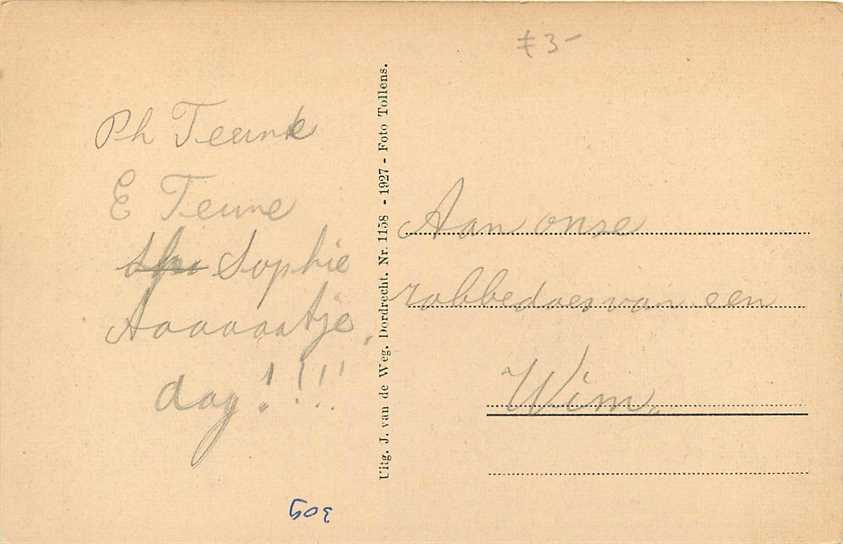 ƒ 3-
Ph Teune
E Teune
Sophie
Aaaaaatje,
dag!!!!
Uitg. J. van de Weg. Dordrecht. Nr. 1158 - 1927 - Foto Tollens.
Aan onse
robbedoes van een
Wim.
309